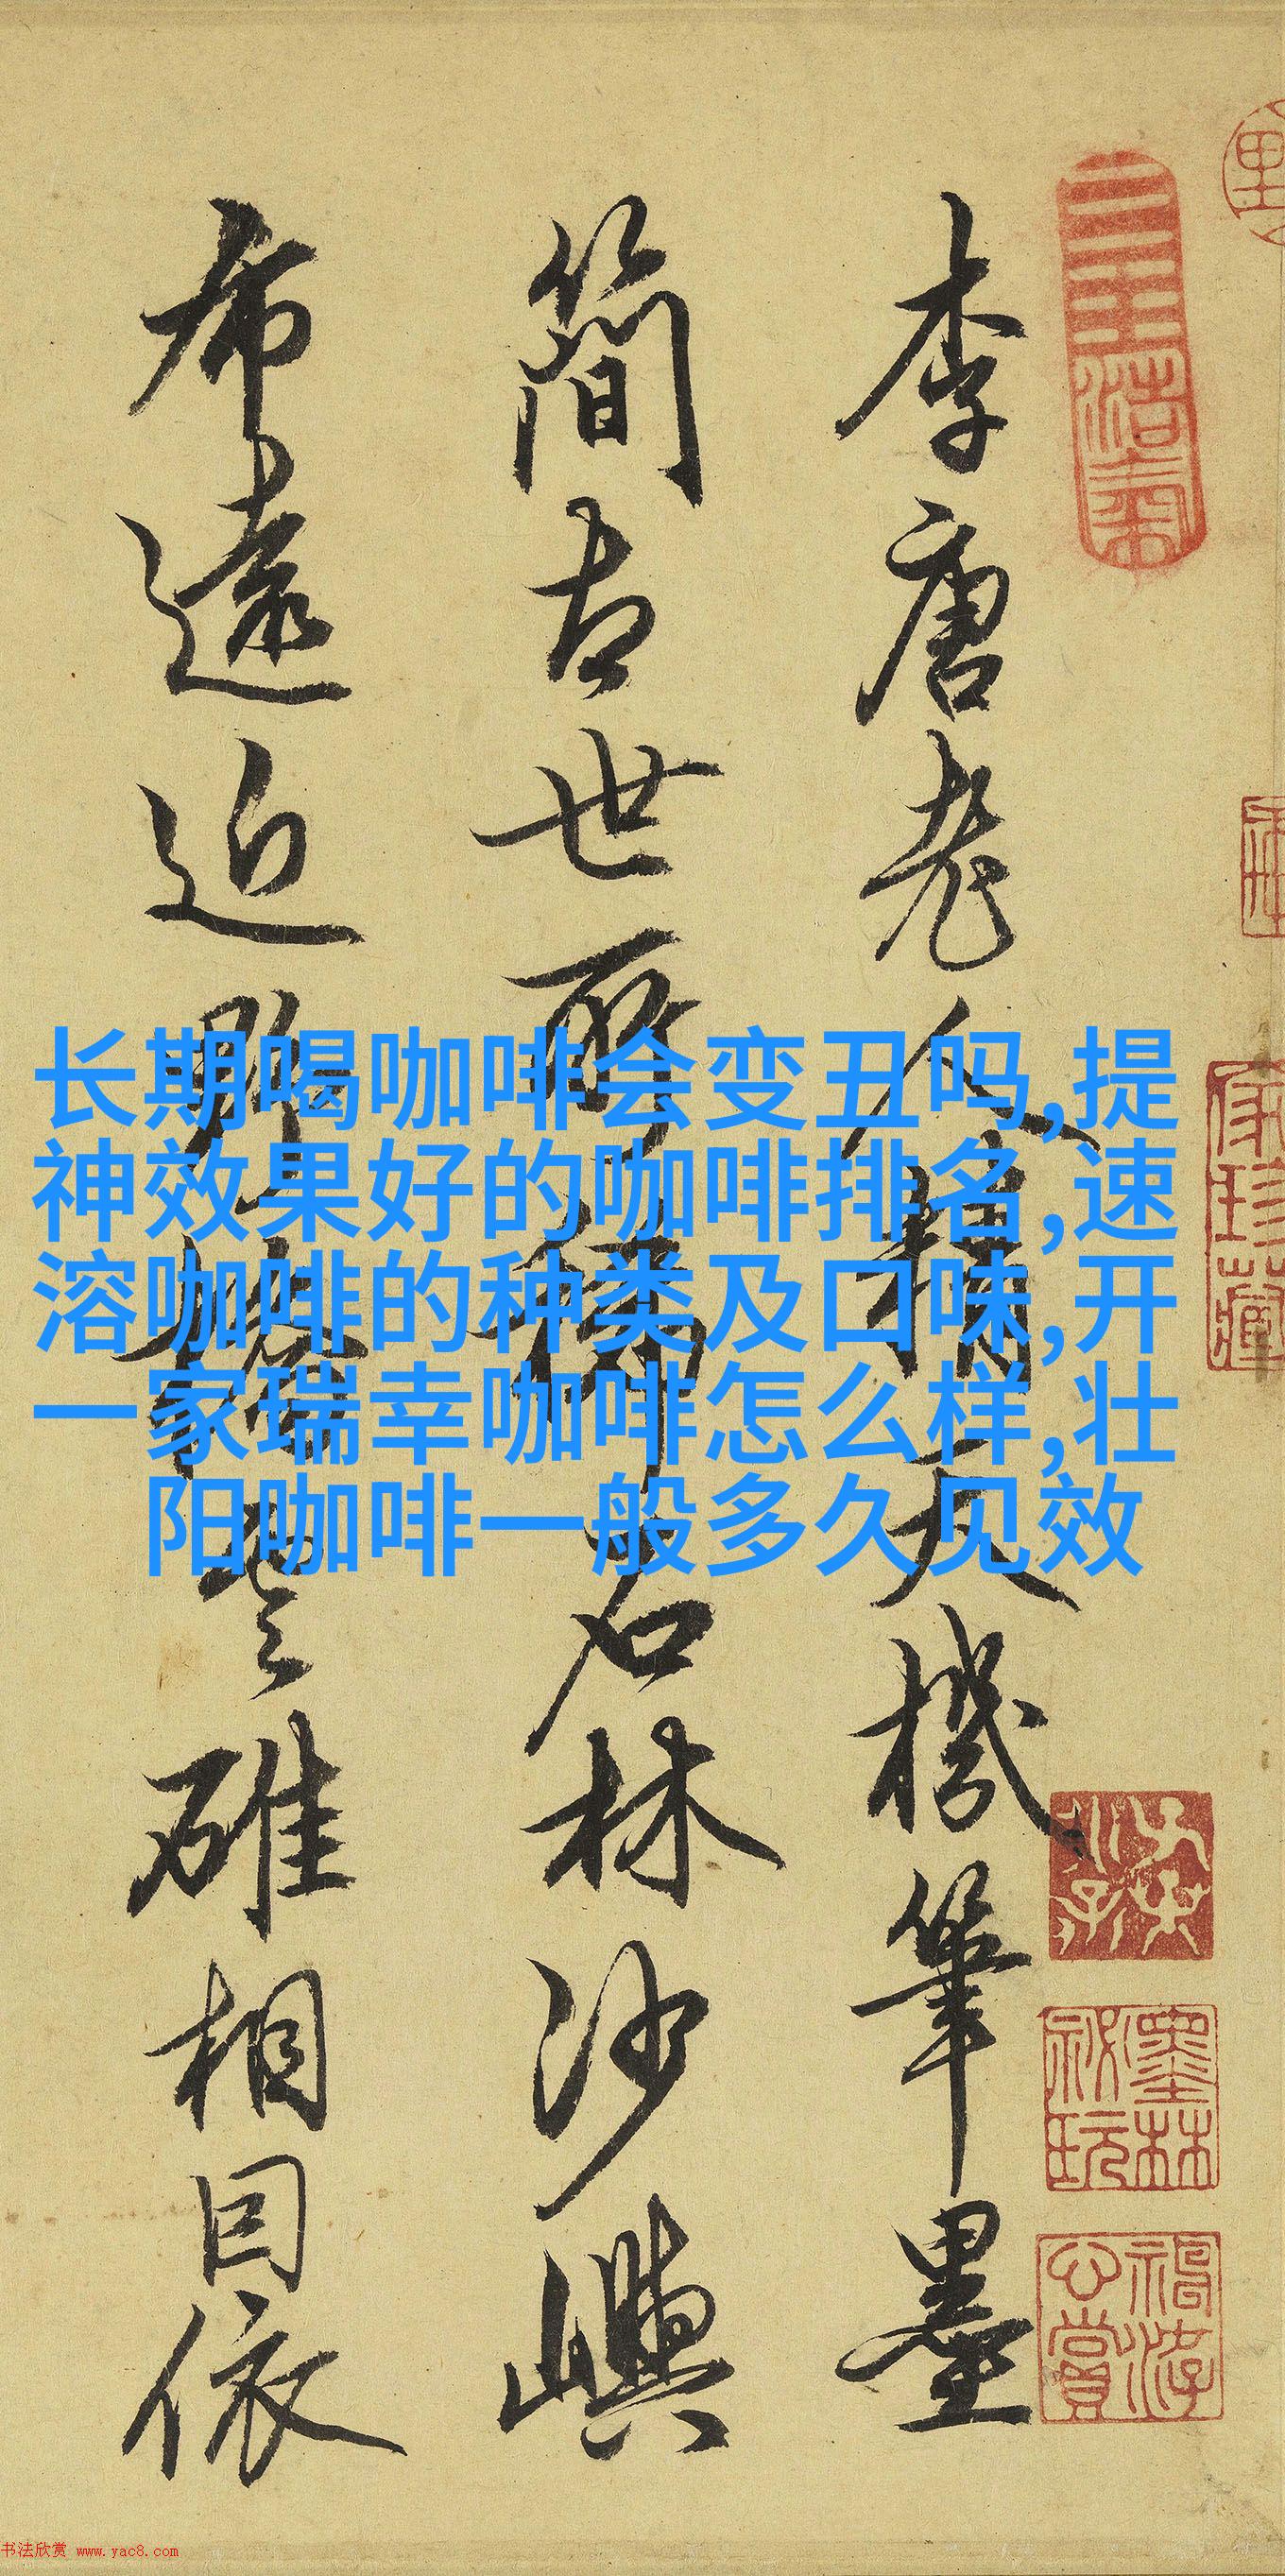 李唐老人精天機筆墨
簡古世所稱石林沙嶼
布遠近
硾相因依
长期喝咖啡会变丑吗,提
神效果好的咖啡排名,速
溶咖啡的种类及口味,开
一家瑞幸咖啡怎么样,壮
阳咖啡一般多久见效
墨林
祕玩
子孫
永
家珍藏
书法欣赏 www.yac8.com